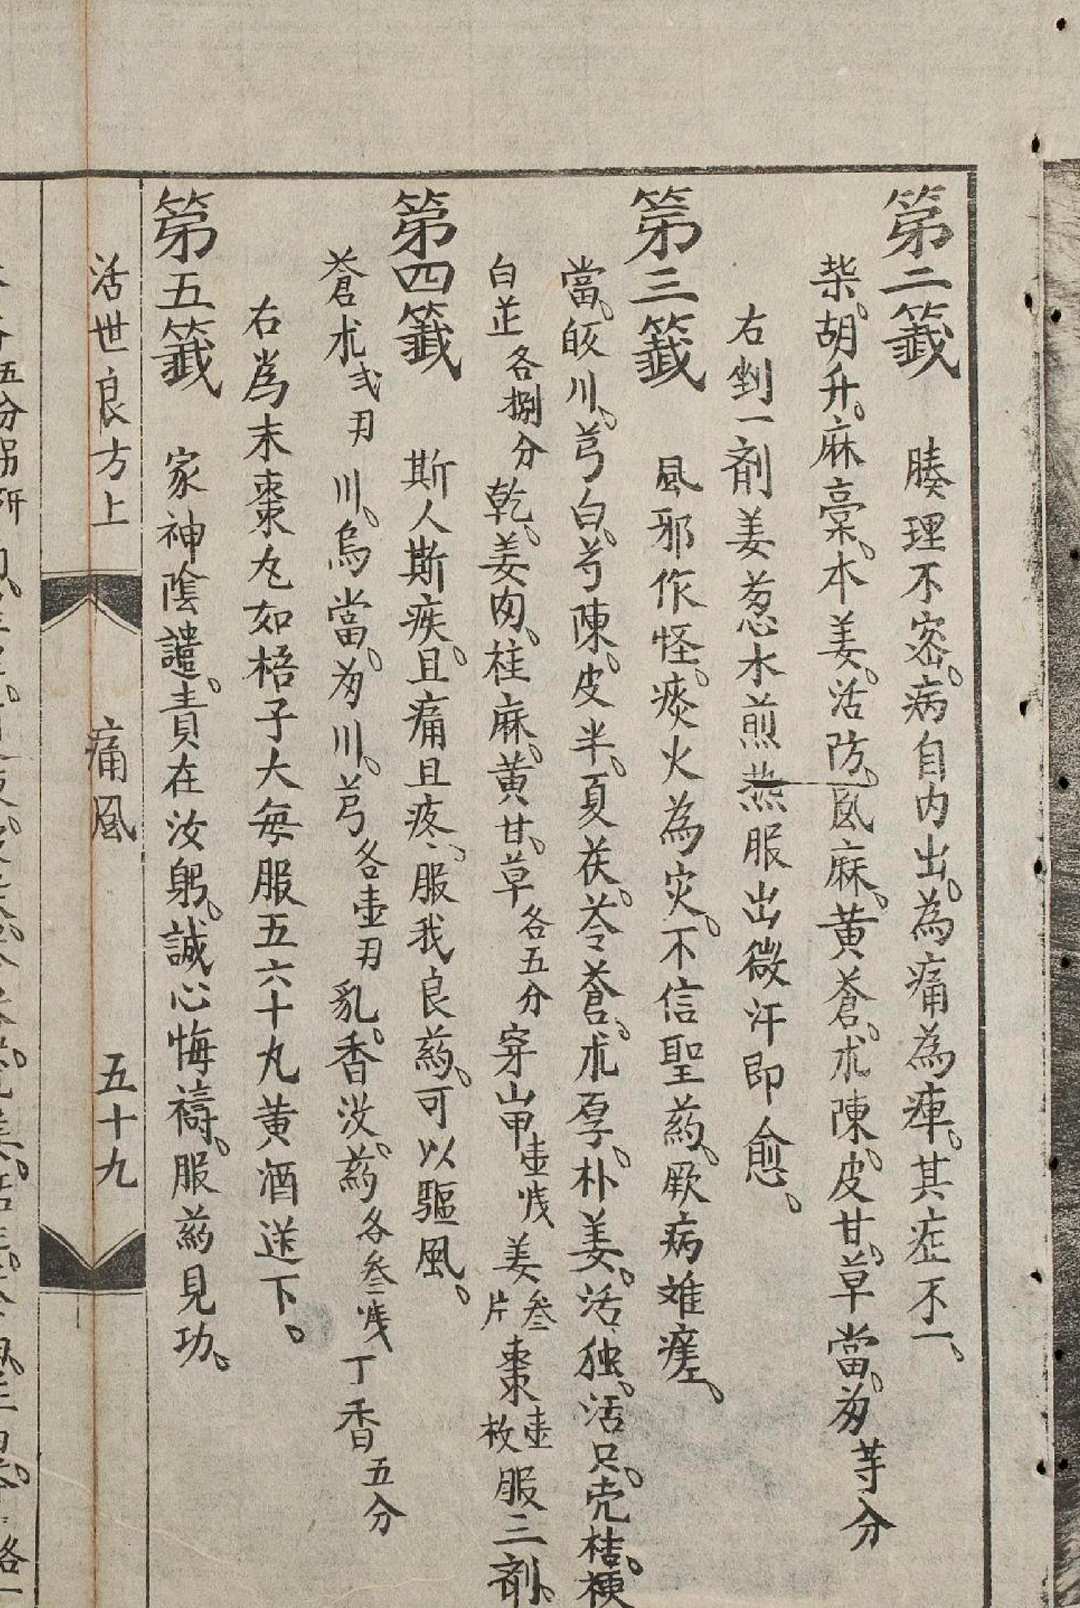 第二籤　腠理不密。病自内出。為痛為痺。其症不一。
柴。胡升。麻藁。本姜。活防。風麻。黄蒼。朮陳。皮甘。草當。芴等分
右剉一剤姜葱水煎热服出微汗即愈。
第三籤　風邪作怪。痰火為灾。不信聖药。厥病难瘥。
當。皈川。芎白。芍陳。皮半。夏茯。苓蒼。朮厚。朴姜。活独。活只。壳桔。梗
白芷各捌分乾。姜肉。桂麻。黄甘。草各五分穿山甲壹戋姜叁片棗壹枚服三剤。
第四籤　斯人斯疾。且痛且疼。服我良药。可以驅風。
蒼朮弍刄川。烏當。芴川。芎各壹刄乳。香没。药各叁戋丁香五分
右為末棗丸如梧子大每服五六十丸黄酒送下。
第五籤　家神陰譴。責在汝躬。誠心悔禱。服药見功。
活世良方上　痛風　五十九